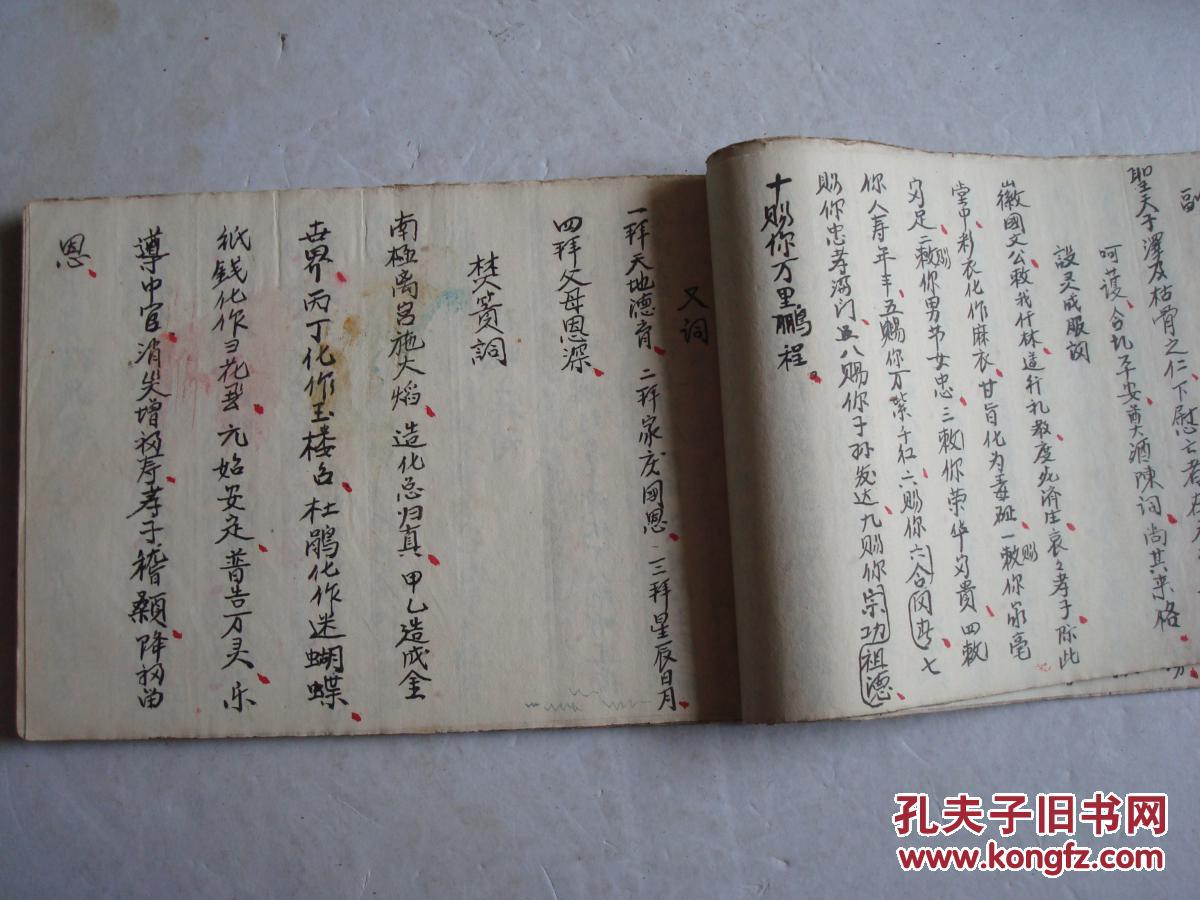 聖天子澤及枯骨之仁下慰亡者在
呵護合扎子安奠酒陳词尚其来格
設又成服词
徽國文公敕我行林造行礼教度死済生哀々孝子际此
堂中彩衣化作麻衣甘旨化为 一赐你家
足二赐你男节女忠三敕你荣华 贵四敕
你人寿年丰五赐你万紫千红六赐你六合同春七
赐你忠孝满门八赐你子孙发达九赐你宗功祖德
十赐你万里鹏程。
又词
一拜天地德育二拜家庆国恩三拜星辰日月
四拜父母恩深
焚簧詞
南極离宫施火焰造化总归真甲乙造成金
世界丙丁化作玉楼台杜鹃化作迷蝴蝶
纸钱化作 花 元始安定普告万灵乐
遵中官消失增极寿孝子稽顙降 当
恩
孔夫子旧书网
www.kongfz.com